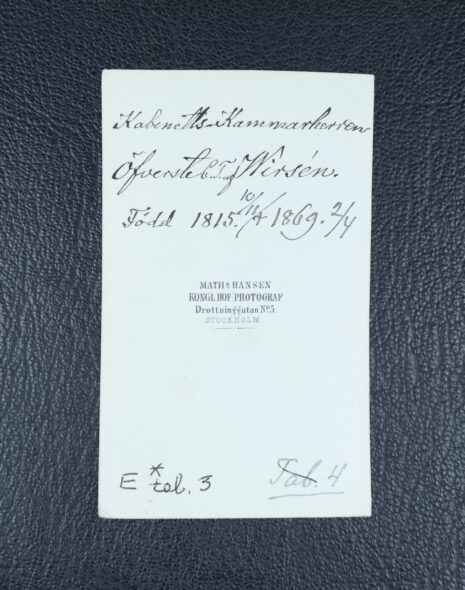 Kabinetts-Kammarherren
Öfverste C. T. af Wirsén.
Född 1815. 10/11 † 1869. 2/4
MATHS HANSEN
KONGL. HOF PHOTOGRAF
Drottninggatan No 5.
STOCKHOLM.
E * tab. 3
Tab. 4